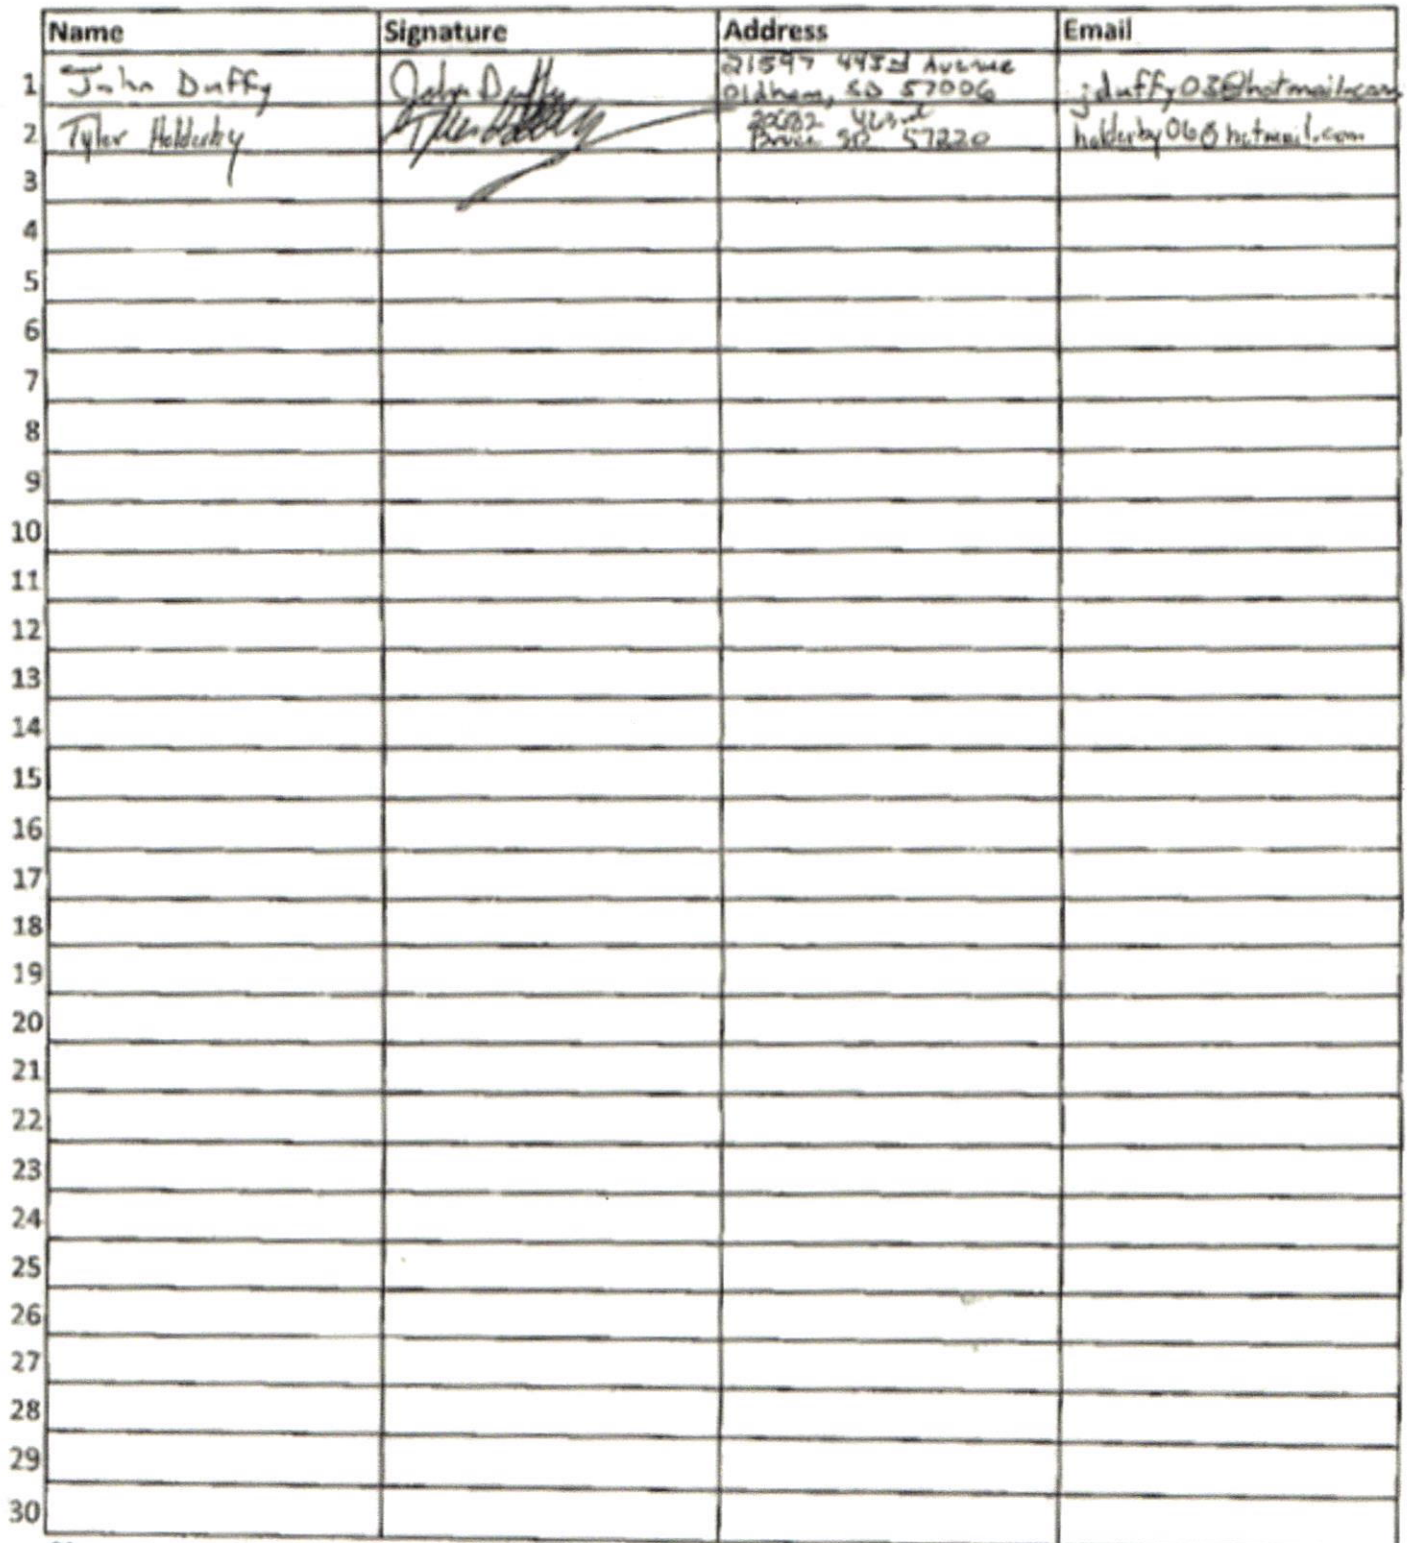 Name Signature Address Email
1 John Duffy John Duffy 21597 443rd Avenue
Oldham, SD 57006 jduffy03@hotmail.com
2 Tyler Holderby 463rd
Bruce SD 57220 holderby06@hotmail.com
3
4
5
6
7
8
9
10
11
12
13
14
15
16
17
18
19
20
21
22
23
24
25
26
27
28
29
30